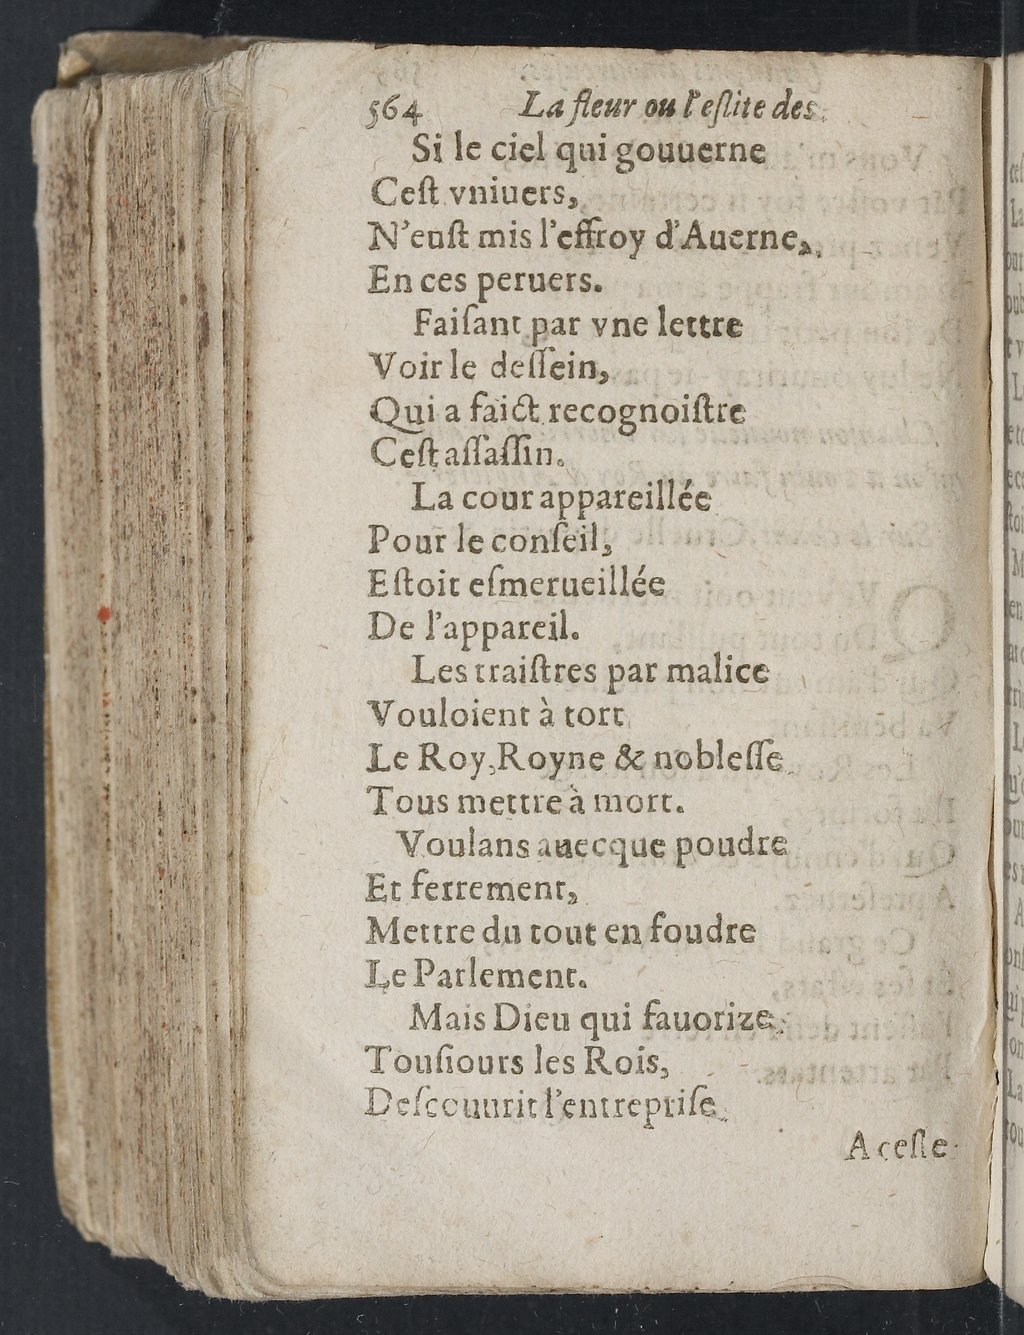 564 La fleur ou l'eſlite des
Si le ciel qui gouuerne
Ceſt vniuers,
N'euſt mis l'effroy d'Auerne,
En ces peruers.
Faiſant par vne lettre
Voir le deſſein,
Qui a faict recognoiſtre
Ceſt aſſaſſin.
La cour appareillée
Pour le conſeil,
Eſtoit eſmerueillée
De l'appareil.
Les traiſtres par malice
Vouloient à tort
Le Roy, Royne & nobleſſe
Tous mettre à mort.
Voulans auecque poudre
Et ferrement,
Mettre du tout en foudre
Le Parlement.
Mais Dieu qui fauorize
Touſiours les Rois,
Deſcouurit l'entrepriſe
A ceſte